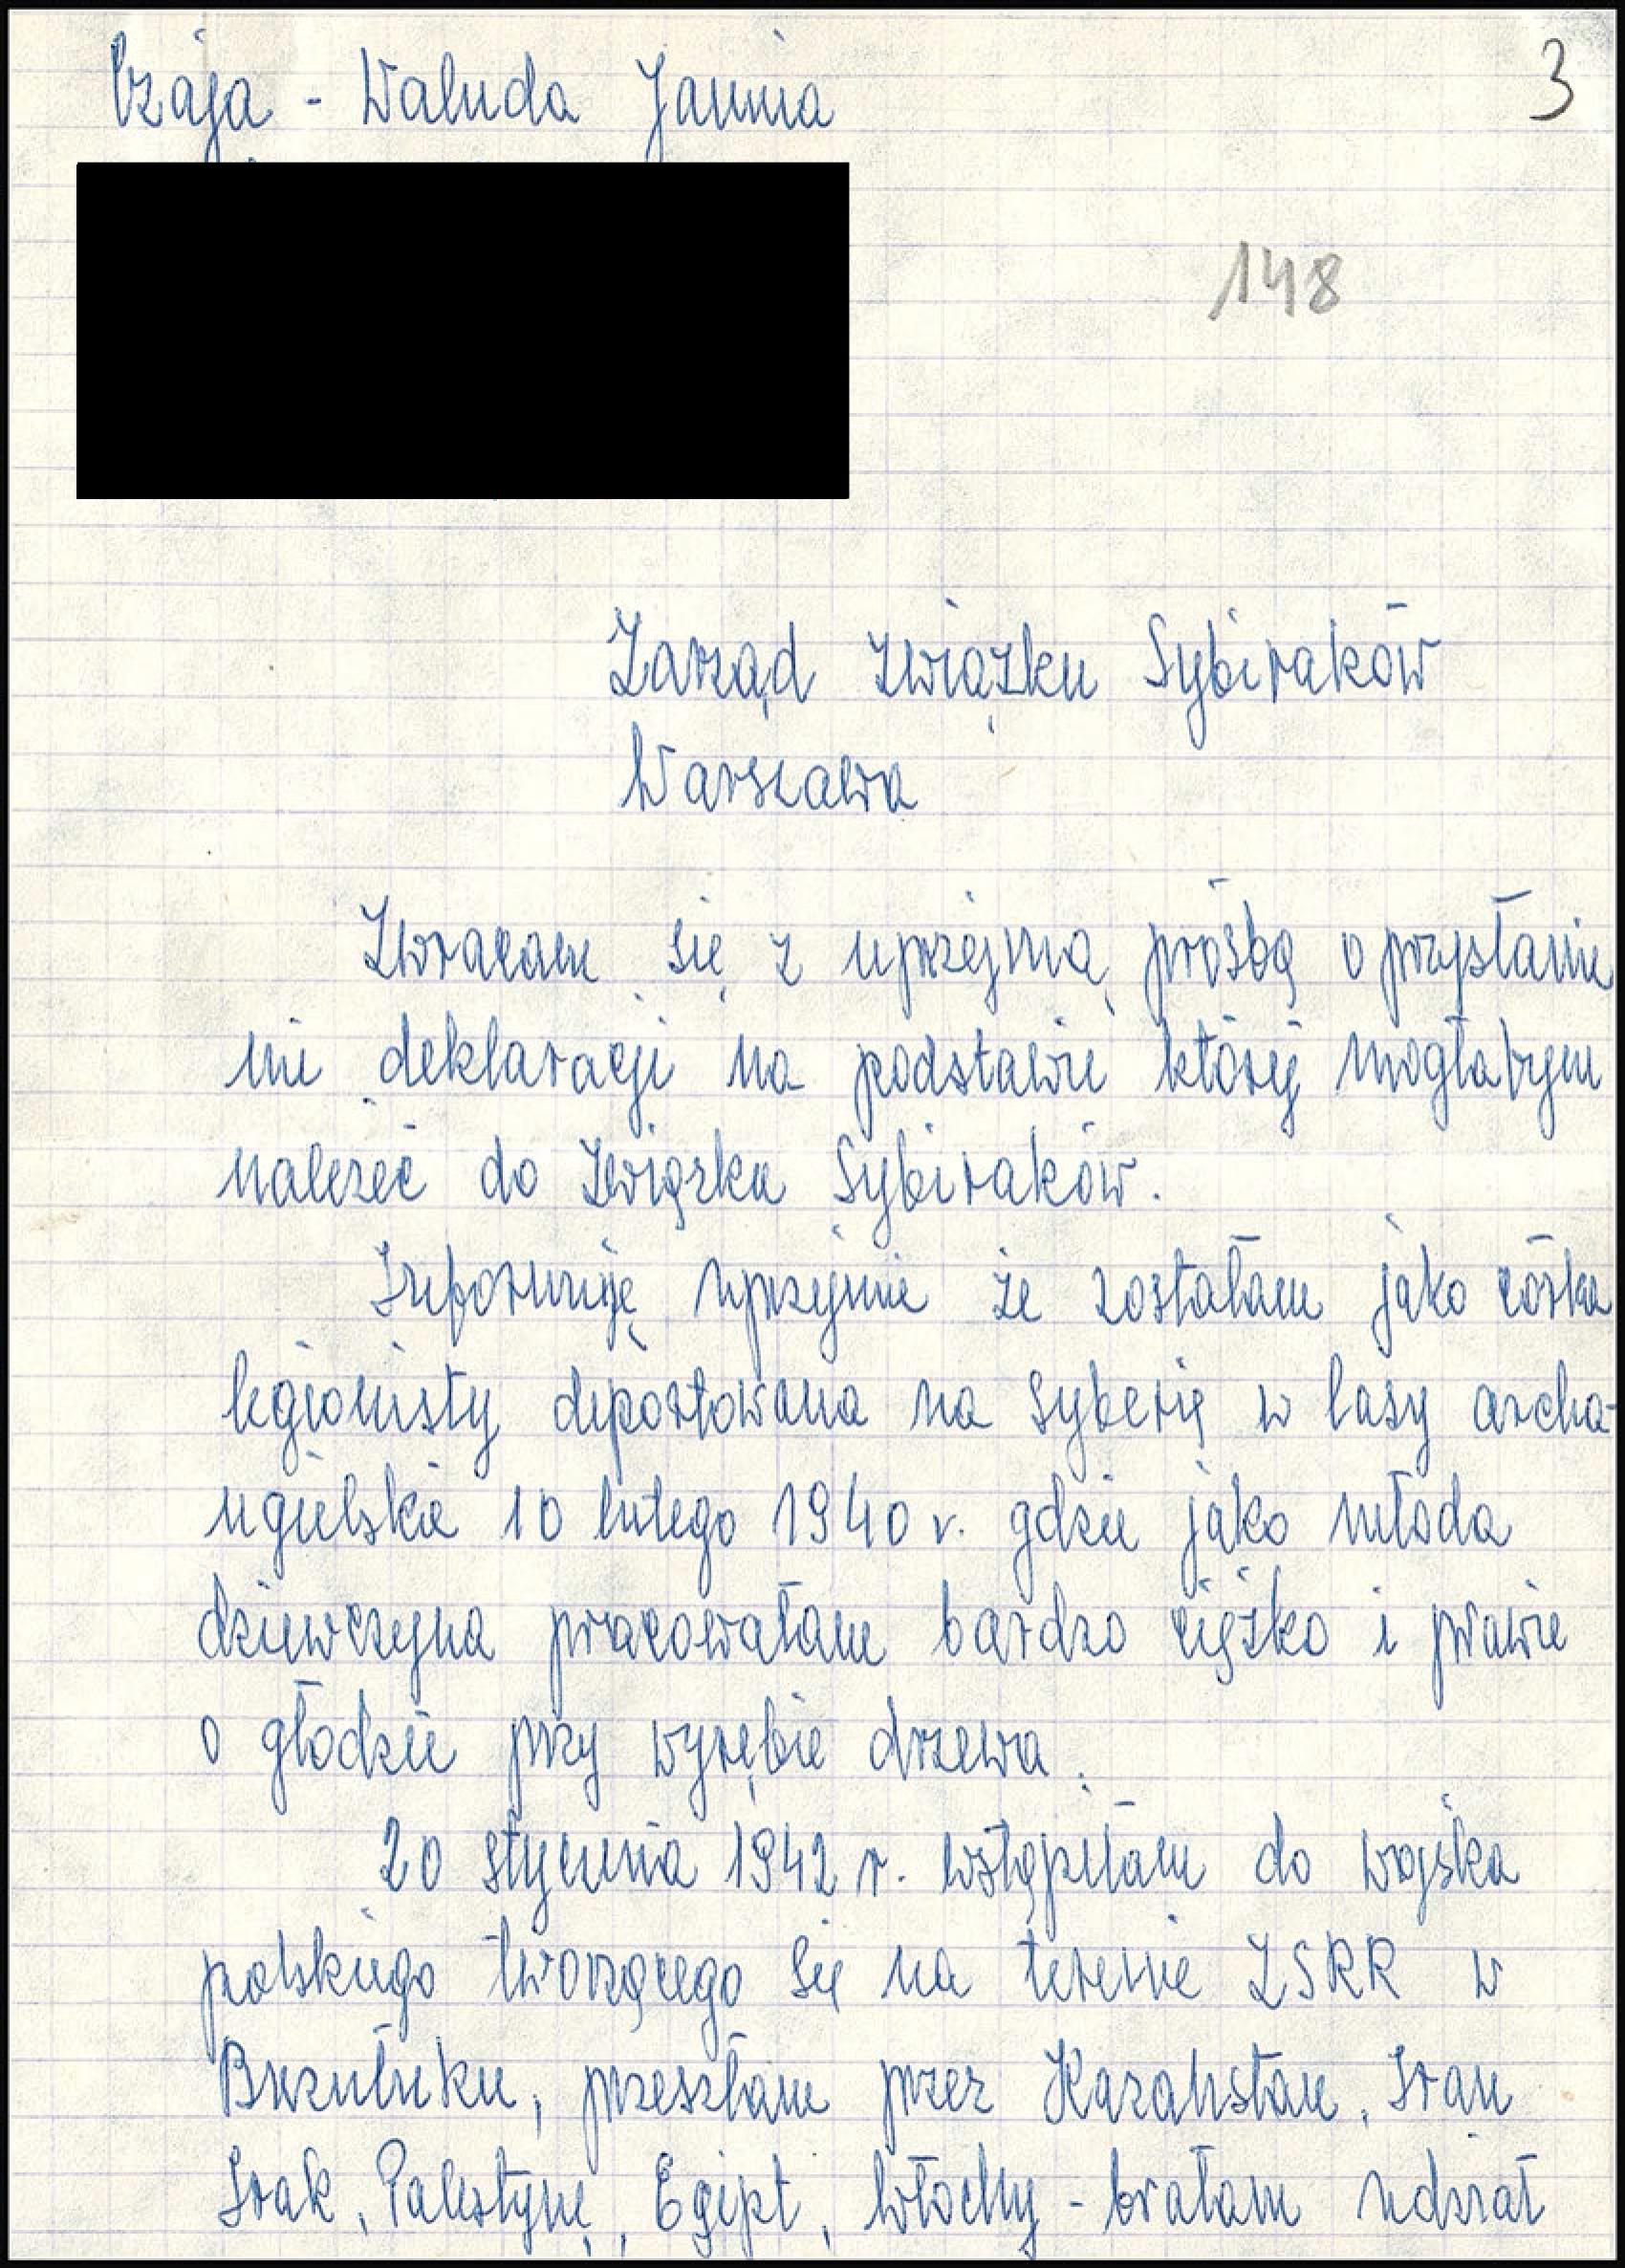 Czaja - Waluda Janina
3
148
Zarząd Związku Sybiraków
Warszawa
Zwracam się z uprzejmą prośbą o przysłanie
mi deklaracji na podstawie której mogłabym
należeć do Związku Sybiraków.
Informuję uprzejmie że zostałam jako córka
legionisty deportowana na Syberię w lasy archa-
ngielskie 10 lutego 1940 r. gdzie jako młoda
dziewczyna pracowałam bardzo ciężko i prawie
o głodzie przy wyrębie drzewa.
20 stycznia 1942 r. wstąpiłam do wojska
polskiego tworzącego się na terenie ZSRR w
Buzułuku, przeszłam przez Kazahstan, Iran
Irak, Palestynę, Egipt, Włochy - brałam udział